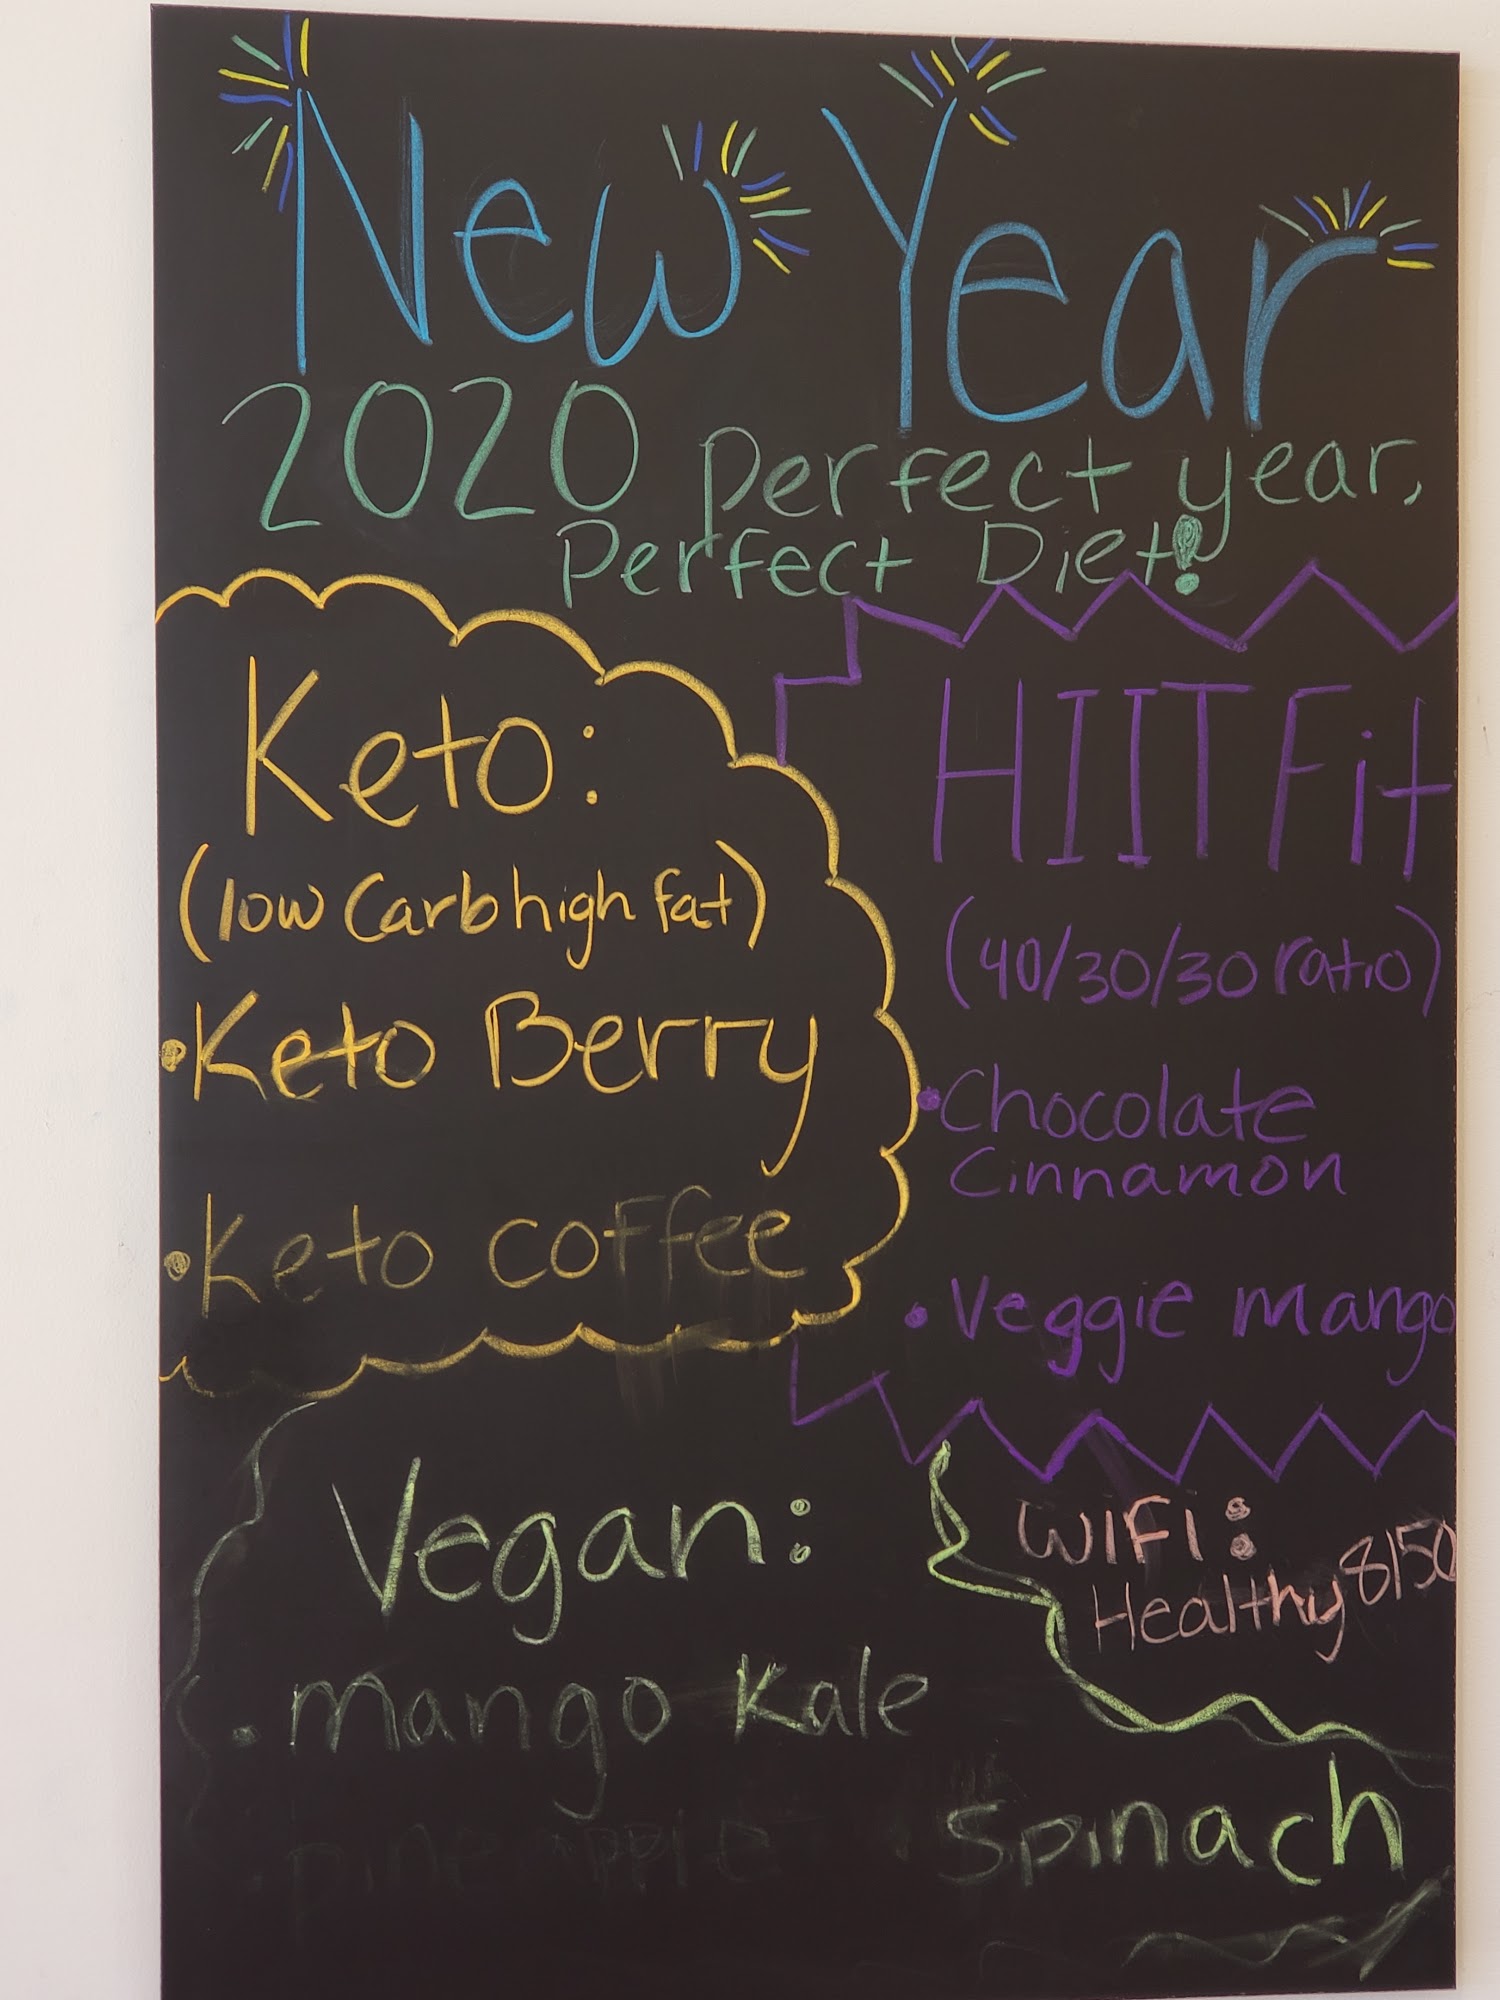 New Year
2020 perfect year,
Perfect Diet!
Keto:
(low Carb high fat)
• Keto Berry
• Keto coffee
HIIT Fit
(40/30/30 ratio)
• Chocolate
Cinnamon
• Veggie mango
Vegan:
• mango Kale
• pineapple
• Spinach
WIFI:
Healthy8150